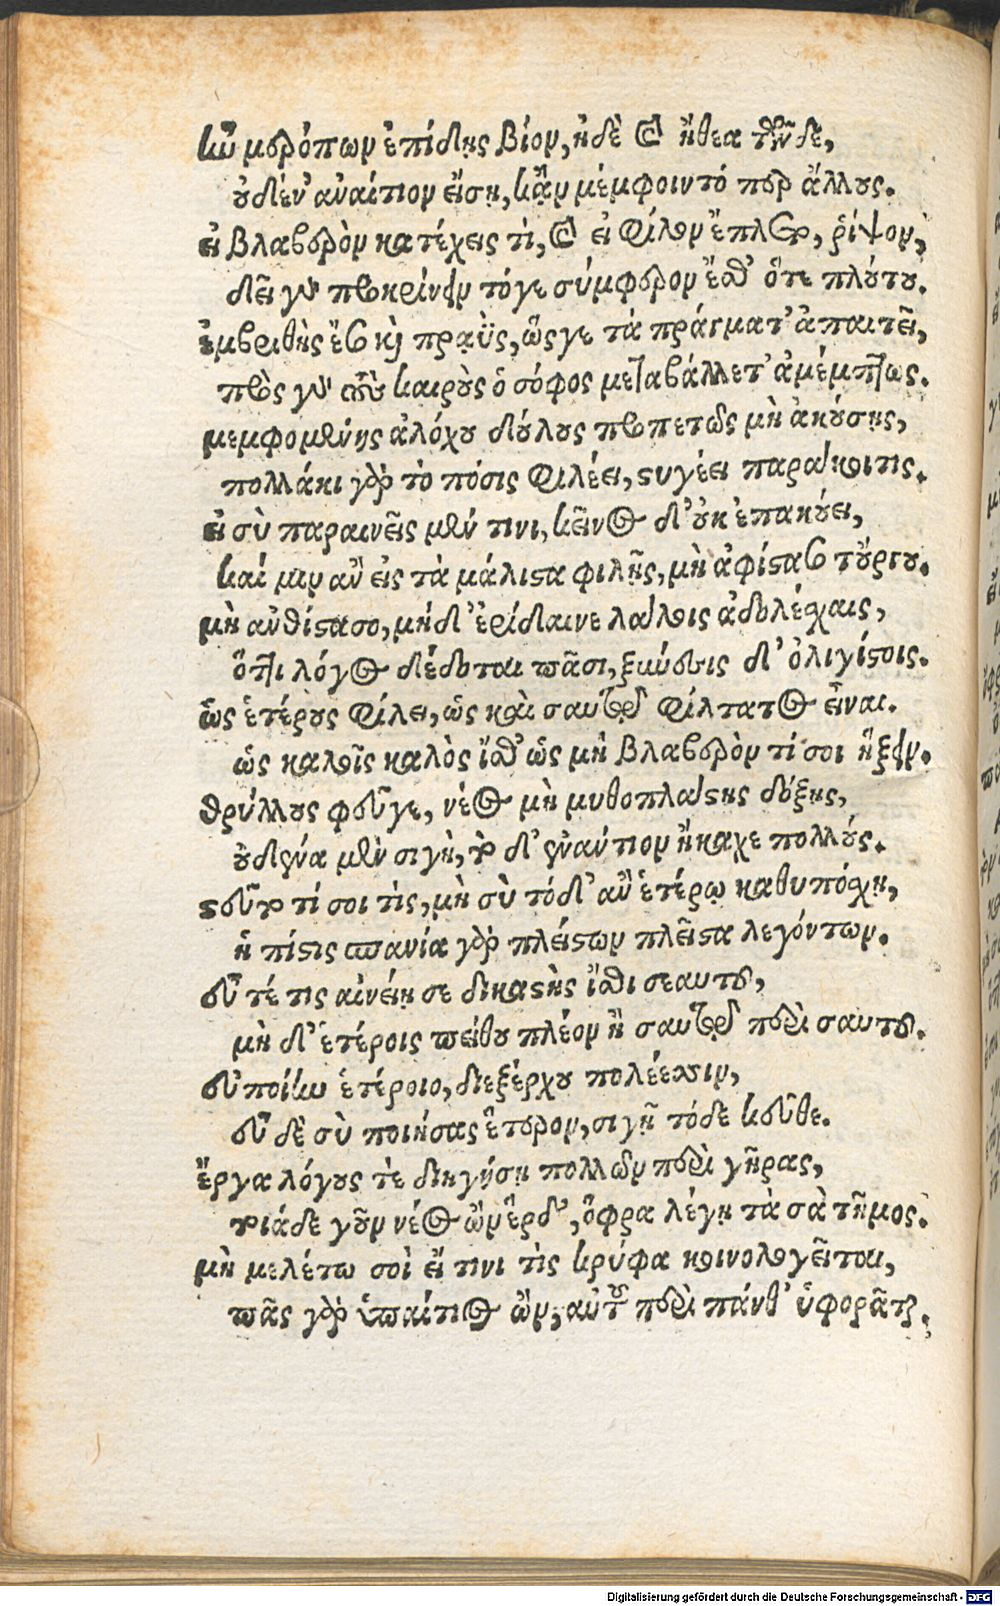 κἢν μερόπων ἐπίδῃς βίον, ἠδὲ καὶ ἤθεα τῶνδε,
οὐδέν᾽ ἀναίτιον εἴσῃ, κἂν μέμφοιντό περ ἄλλους.
εἰ βλαβερὸν κατέχεις τὶ, καὶ εἰ φίλον ἔπλετο, ῥίψον,
δεῖ γὰρ προκρίνειν τόγε σύμφερον ἔσθ᾽ ὅτε πλούτου.
ἐμβριθὴς ἔσο καὶ πραῢς, ὥς γε τὰ πράγματ᾽ ἀπαιτεῖ,
πρὸς γὰρ τοὺς καιροὺς ὁ σόφος μεταβάλλετ᾽ ἀμέμπτως.
μεμφομένης ἀλόχου δούλους προπετῶς μὴ ἀκούσῃς,
πολλάκι γὰρ τὸ πόσις φιλέει, στυγέει παράκοιτις.
εἰ σὺ παραινεῖς μέν τινι, κεῖνος δ᾽ οὐκ ἐπακούει,
καί μιν ἂν εἰς τὰ μάλιστα φιλῇς, μὴ ἀφίστασο τοὔργου.
μὴ ἀνθίστασο, μήδ᾽ ἐρίδαινε λάλοις ἀδολέσχαις,
ὅττι λόγος δέδοται πᾶσι, ξύνεσις δ᾽ ὀλιγίστοις.
ὣς ἑτέρους φίλει, ὡς καὶ σαυτῷ φίλτατος εἶναι.
ὡς καλοῖς καλὸς ἴσθ᾽ ὡς μὴ βλαβερὸν τί σοι ἥξειν.
θρύλλους φεῦγε, νέος μὴ μυθοπλάστης δόξῃς,
οὐδένα μὲν σιγὴ, τὸ δ᾽ ἐναντίον ἤκαχε πολλούς.
στεῦτο τί σοι τὶς, μὴ σὺ τόδ᾽ αὖ ἑτέρῳ καθυπόσχῃ,
ἡ πίστις σπανία γὰρ πλείστων πλεῖστα λεγόντων.
εὖ τέ τις αἰνέῃ σε δικαστὴς ἴσθι σεαυτοῦ,
μὴ δ᾽ ἑτέροις πείθου πλέον ἢ σαυτῷ περὶ σαυτοῦ.
εὐποίϊαν ἑτέροιο, διεξέρχου πολέεσσιν,
εὖ δὲ σὺ ποιήσας ἕτερον, σιγῇ τόδε κεῦθε.
ἔργα λόγους τὲ διηγήσῃ πολλῶν περὶ γῆρας,
τοιάδε γοῦν νέος ὢν ἔρδ᾽, ὄφρα λέγῃ τὰ σὰ τῆμος.
μὴ μελέτω σοὶ εἴ τινι τὶς κρύφα κοινολογεῖται,
πᾶς γὰρ ὑπαίτιος ὢν, αὐτοῦ περὶ πάνθ᾽ ὑφορᾶται.
Digitalisierung gefördert durch die Deutsche Forschungsgemeinschaft - DFG